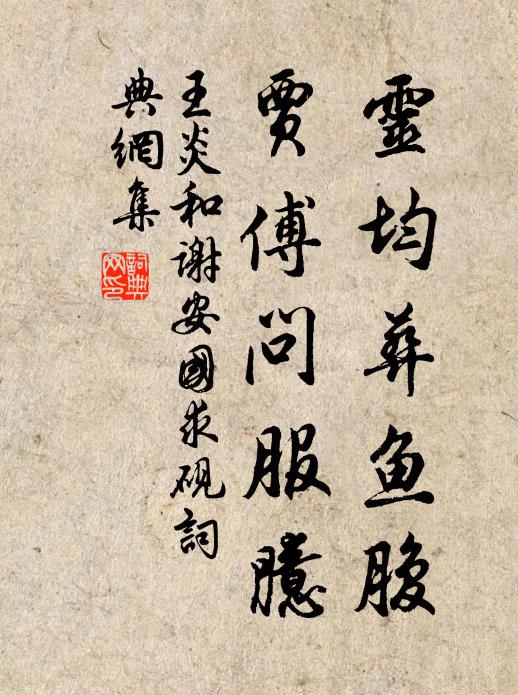 靈均葬魚腹
賈傅問服臆
王炎和謝安國求硯詞
典網集
詞典網印